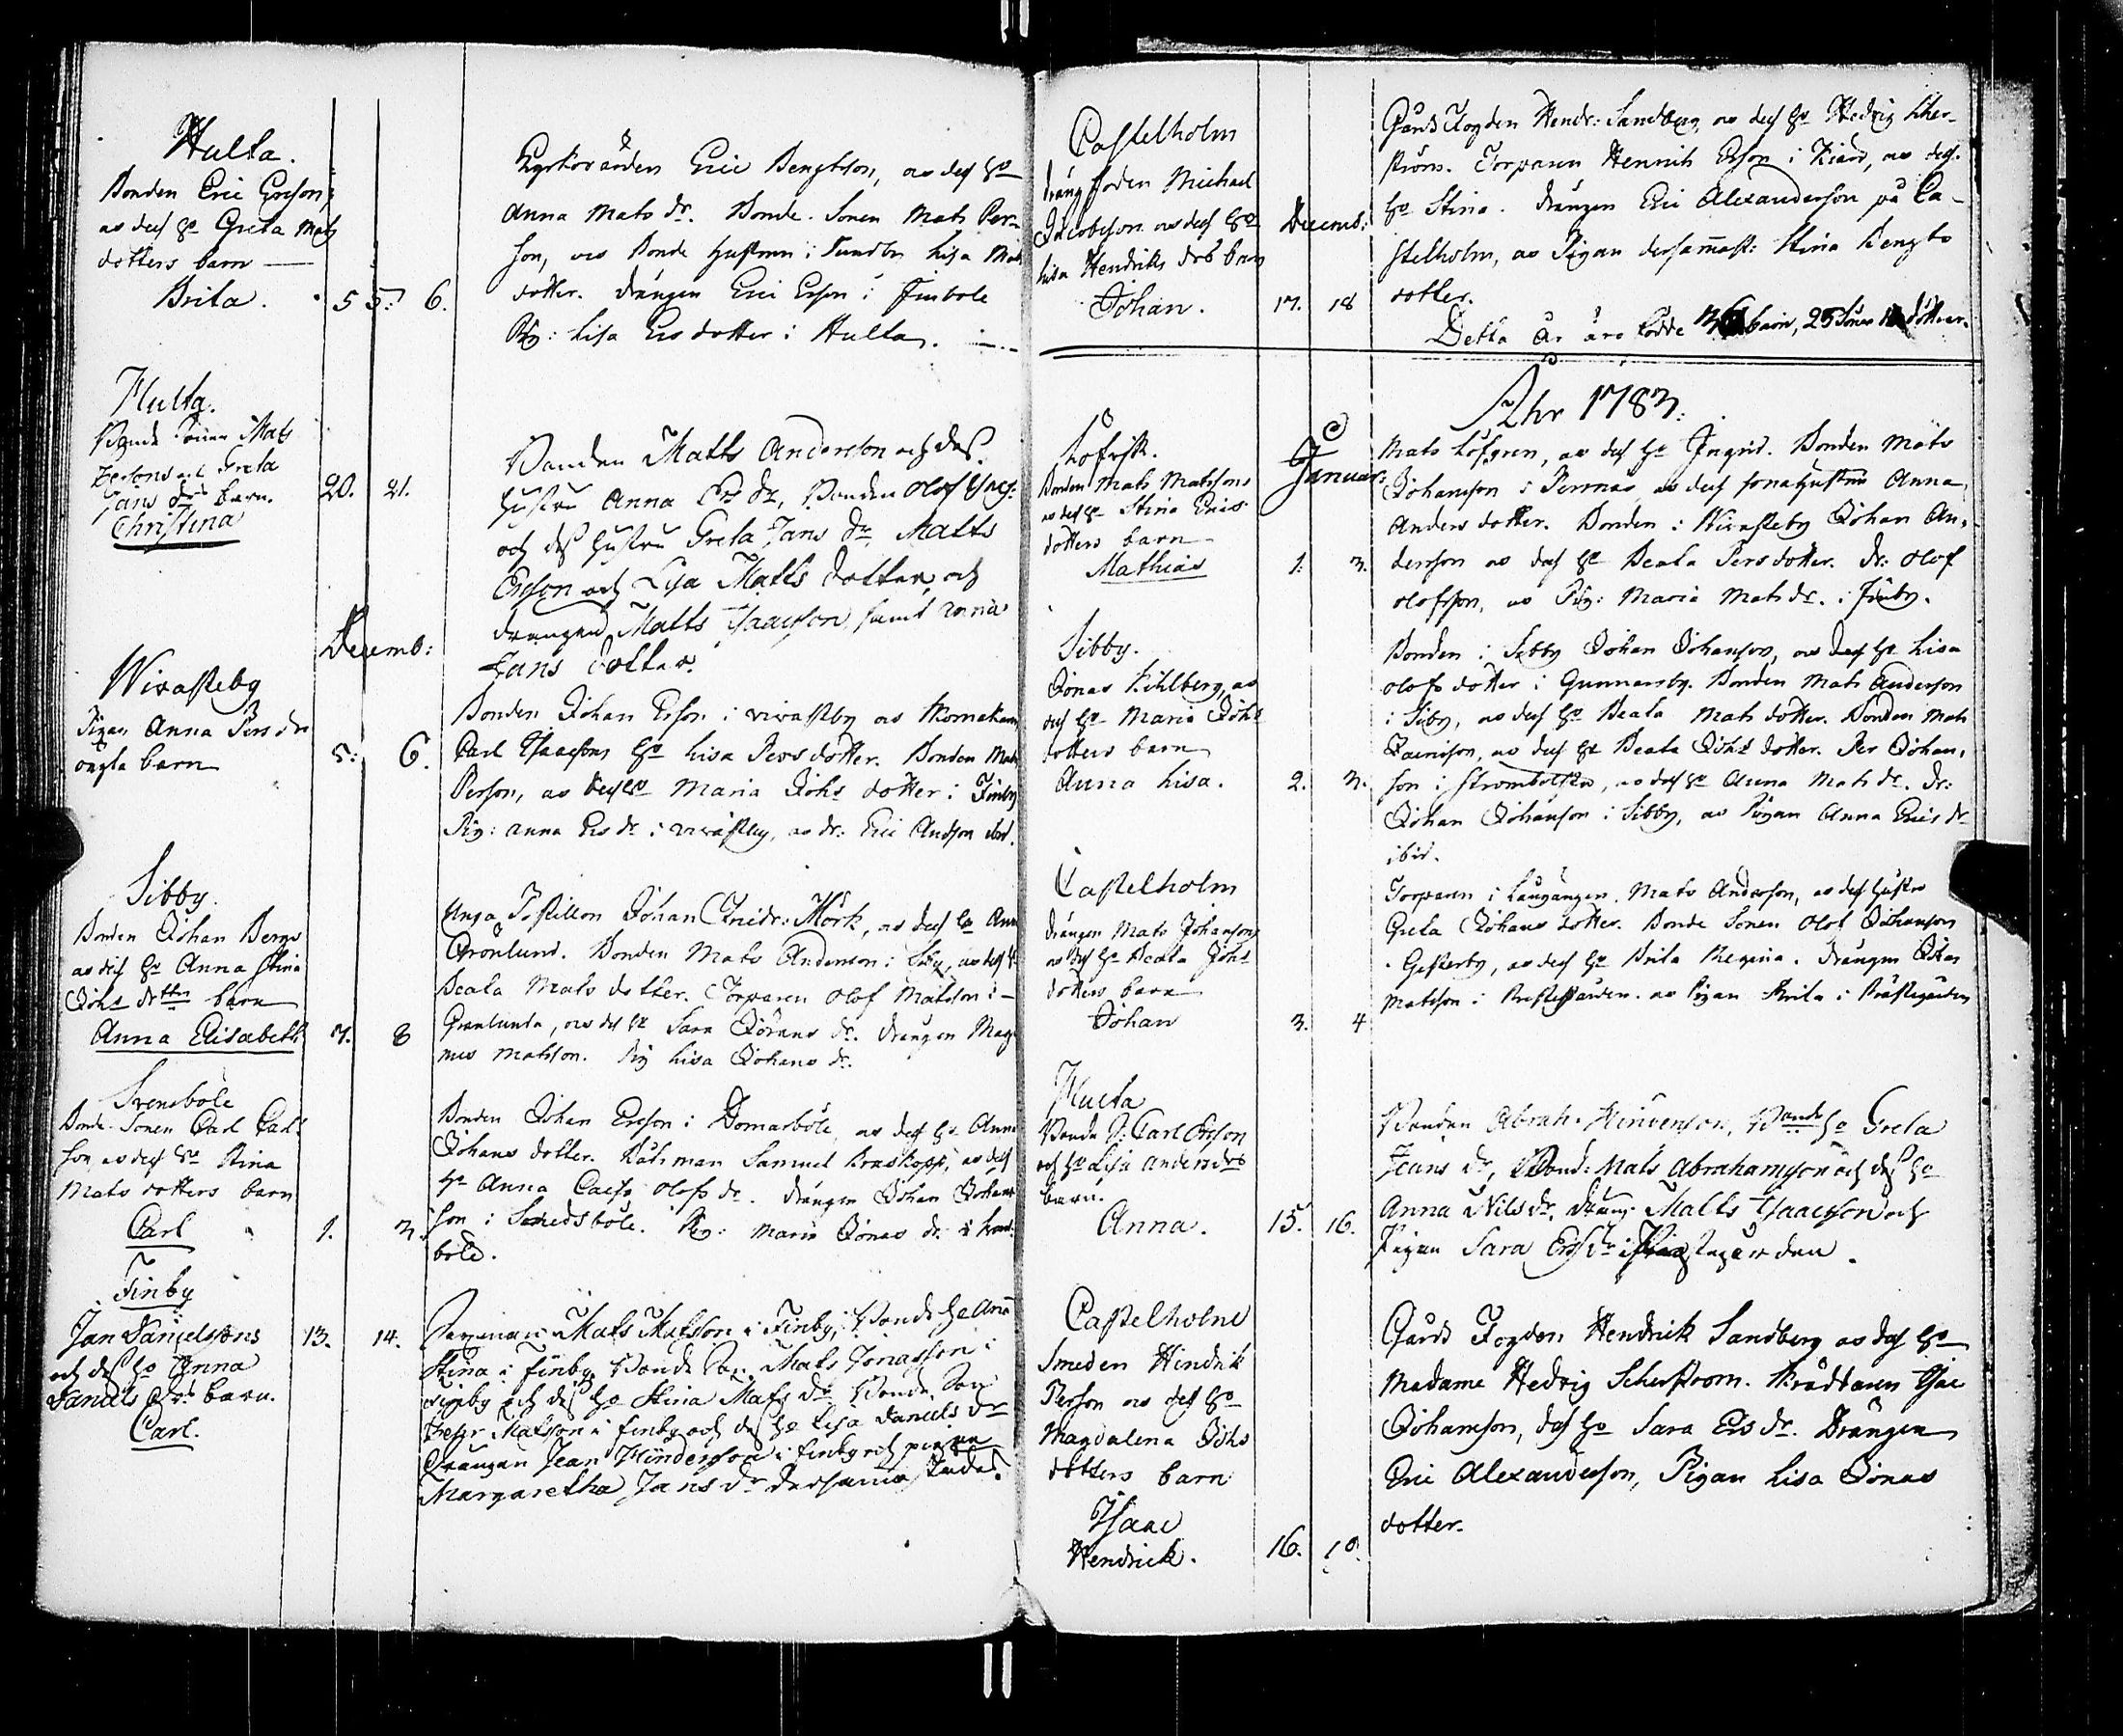 Hulta.
Bonden Eric Ersons
ac dess h:o Greta Mats
dotters barn
Brita. 5 5: 6.
Kyrkovärden Eric Bengtson, ac dess h:o
Anna Mats dr. Bonde-Sonen Mats Per-
son, ac Bonde hustrun i Sundby Lisa Mats
dotter. Drängen Eric Erson i Finbole
Pig: Lisa Ersdotter i Hulta.
Hulta.
Bonde Sonen Mats
Persons och Greta
Jans drs barn.
Christina
20. 21.
Bonden Matts Andersson och dess
hustru Anna Ers dr, Bonden Olof
och dess hustru Greta Jans dr, Matts
Ersson och Lisa Matts dotter, och
drängen Matts Isaacsson, samt Anna
Jans dotter.
Decemb:
Wivasteby
Pigan Anna Pers drs
oägta barn
5: 6.
Bonden Johan Erson i wivastby ac
Carl Isaacsons h:o Lisa Persdotter. Bonden Mats
Person, ac dess h:o Maria Johs dotter i Finby
Pig: Anna Ers dr i wivastby, ac dr: Eric Andson
Sibby.
Bonden Johan Bergs
ac dess h:o Anna Stina
Johs dotters barn
Anna Elisabeth 7. 8
Unga Postillon Johan Mörk, ac dess h:o Anna
Grönlund. Bonden Mats Anderson i Siby, ac dess h:o
Beata Mats dotter. Torparen Olof Matsson i
Grenlunda, ac dess h:o Sara Görans dr. Drängen Mag-
nus Matsson. Pig Lisa Johans dr.
Svensböle
Bonde-Sonen Carl Carl-
son ac dess h:o Stina
Mats dotters barn
Carl 1. 3.
Bonden Johan Ersson i Domarböle, ac dess h:o Anna
Johans dotter. Båtsman Samuel Braskopp, ac dess
h:o Anna Caisa Olofs dr. Drängen Johan Johans-
son i Smedsböle. Pig: Maria Jonas dr. i
böle.
Finby
Jan Danielssons
och dess h:o Anna
Daniels drs barn.
Carl.
13. 14.
Mats Matsson i Finby, Bonde h:o Anna
Stina i finby Bonde Son Mats Jonasson i
Finby och dess h:o Stina Mats dr Bonde Son
Pehr Matsson i finby och dess h:o Lisa Daniels dr
Drängen Jean Hindersson i finby och pigan
Margaretha Jans dr dersammastädes.
Castelholm
Drängfoden Michael
Jacobson ac dess h:o
Lisa Hendriks drs barn
Johan.
Decemb:
17. 18
Gårds Fogden Hendr: Sandberg, ac dess h:o Hedvig Scher-
ström. Torparen Henrich Erson i Kierr, ac dess
h:o Stina. Drängen Eric Alexanderson på Ca-
stelholm, ac Pigan dersammast: Stina Bengts
dotter.
Detta år äro födde barn, 25 Söner döttrar.
Ahr 1783:
Januar:
Lofvik.
Bonden Mats Matsons
ac dess h:o Stina Erics
dotters barn
Mathias 1. 3.
Mats Löfgren, ac dess h:o Ingrid. Bonden Mats
Johanson i Pernnäs, ac dess sonahustru Anna
Anders dotter. Bonden i Wivasteby Johan An-
dersson ac dess h:o Beata Persdotter. Dr: Olof
Olofsson, ac Pig: Maria Matsdr. i Finby.
Sibby.
Jonas Kihlberg, ac
dess h:o Maria Johs
dotters barn
Anna Lisa. 2. 3.
Bonden i Sibby Johan Johanson, ac dess h:o Lisa
Olofs dotter i Gunnarsby. Bonden Mats Anderson
i Siby, ac dess h:o Beata Mats dotter. Bonden Mats
ac dess h:o Beata Johs dotter. Per Johan-
son i Strömbolstad, ac dess h:o Anna Mats dr. Dr:
Johan Johanson i Sibby, ac Pigan Anna Erics dr
ibid.
Castelholm
Drängen Mats Johanson
ac dess h:o Beata Johs
dotters barn
Johan 3. 4
Torparen i Laugängen Mats Anderson, ac dess hustru
Greta Johans dotter. Bonde Sonen Olof Johanson
Gesterby, ac dess h:o Brita Regina. Drängen Johan
Matsson i Prestegården. ac Pigan Brita i Prästegården
Hulta
Bonde S: Carl Ersson
och h:o Lisa Anders drs
barn.
Anna. 15. 16.
Bonden Abrah. Hindersson, Bonde h:o Greta
Jeans dr, Bond: Mats Abrahamsson och dess h:o
Anna Nils dr, Dräng: Matts Isaacsson och
Pigan Sara Ers dr i Prästegården.
Castelholm
Smeden Hindrik
Person ac dess h:o
Magdalena Johs
dotters barn
Isaac
Hendrick. 16. 18.
Gårds Fogden Hendrick Sandberg ac dess h:o
Madame Hedvig Scherström. Isac
Johanson, dess h:o Sara Ers dr. Drängen
Eric Alexanderson, Pigan Lisa Jonas
dotter.